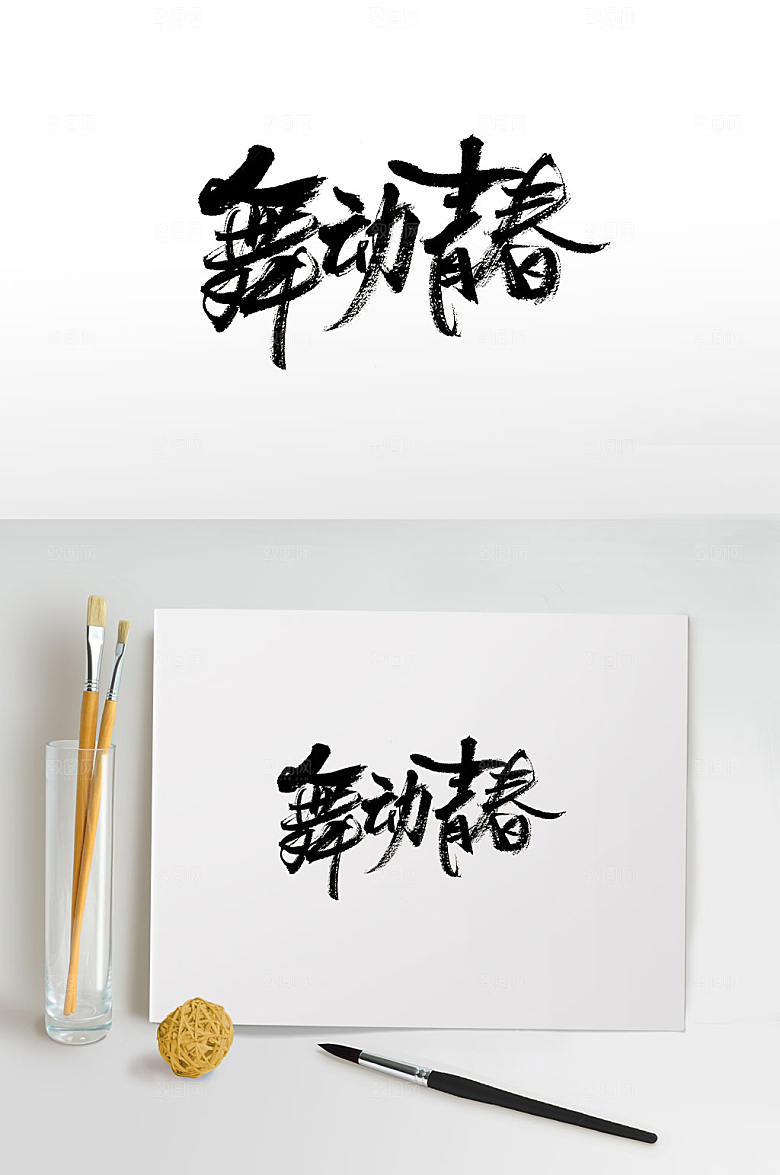 舞动青春
舞动青春